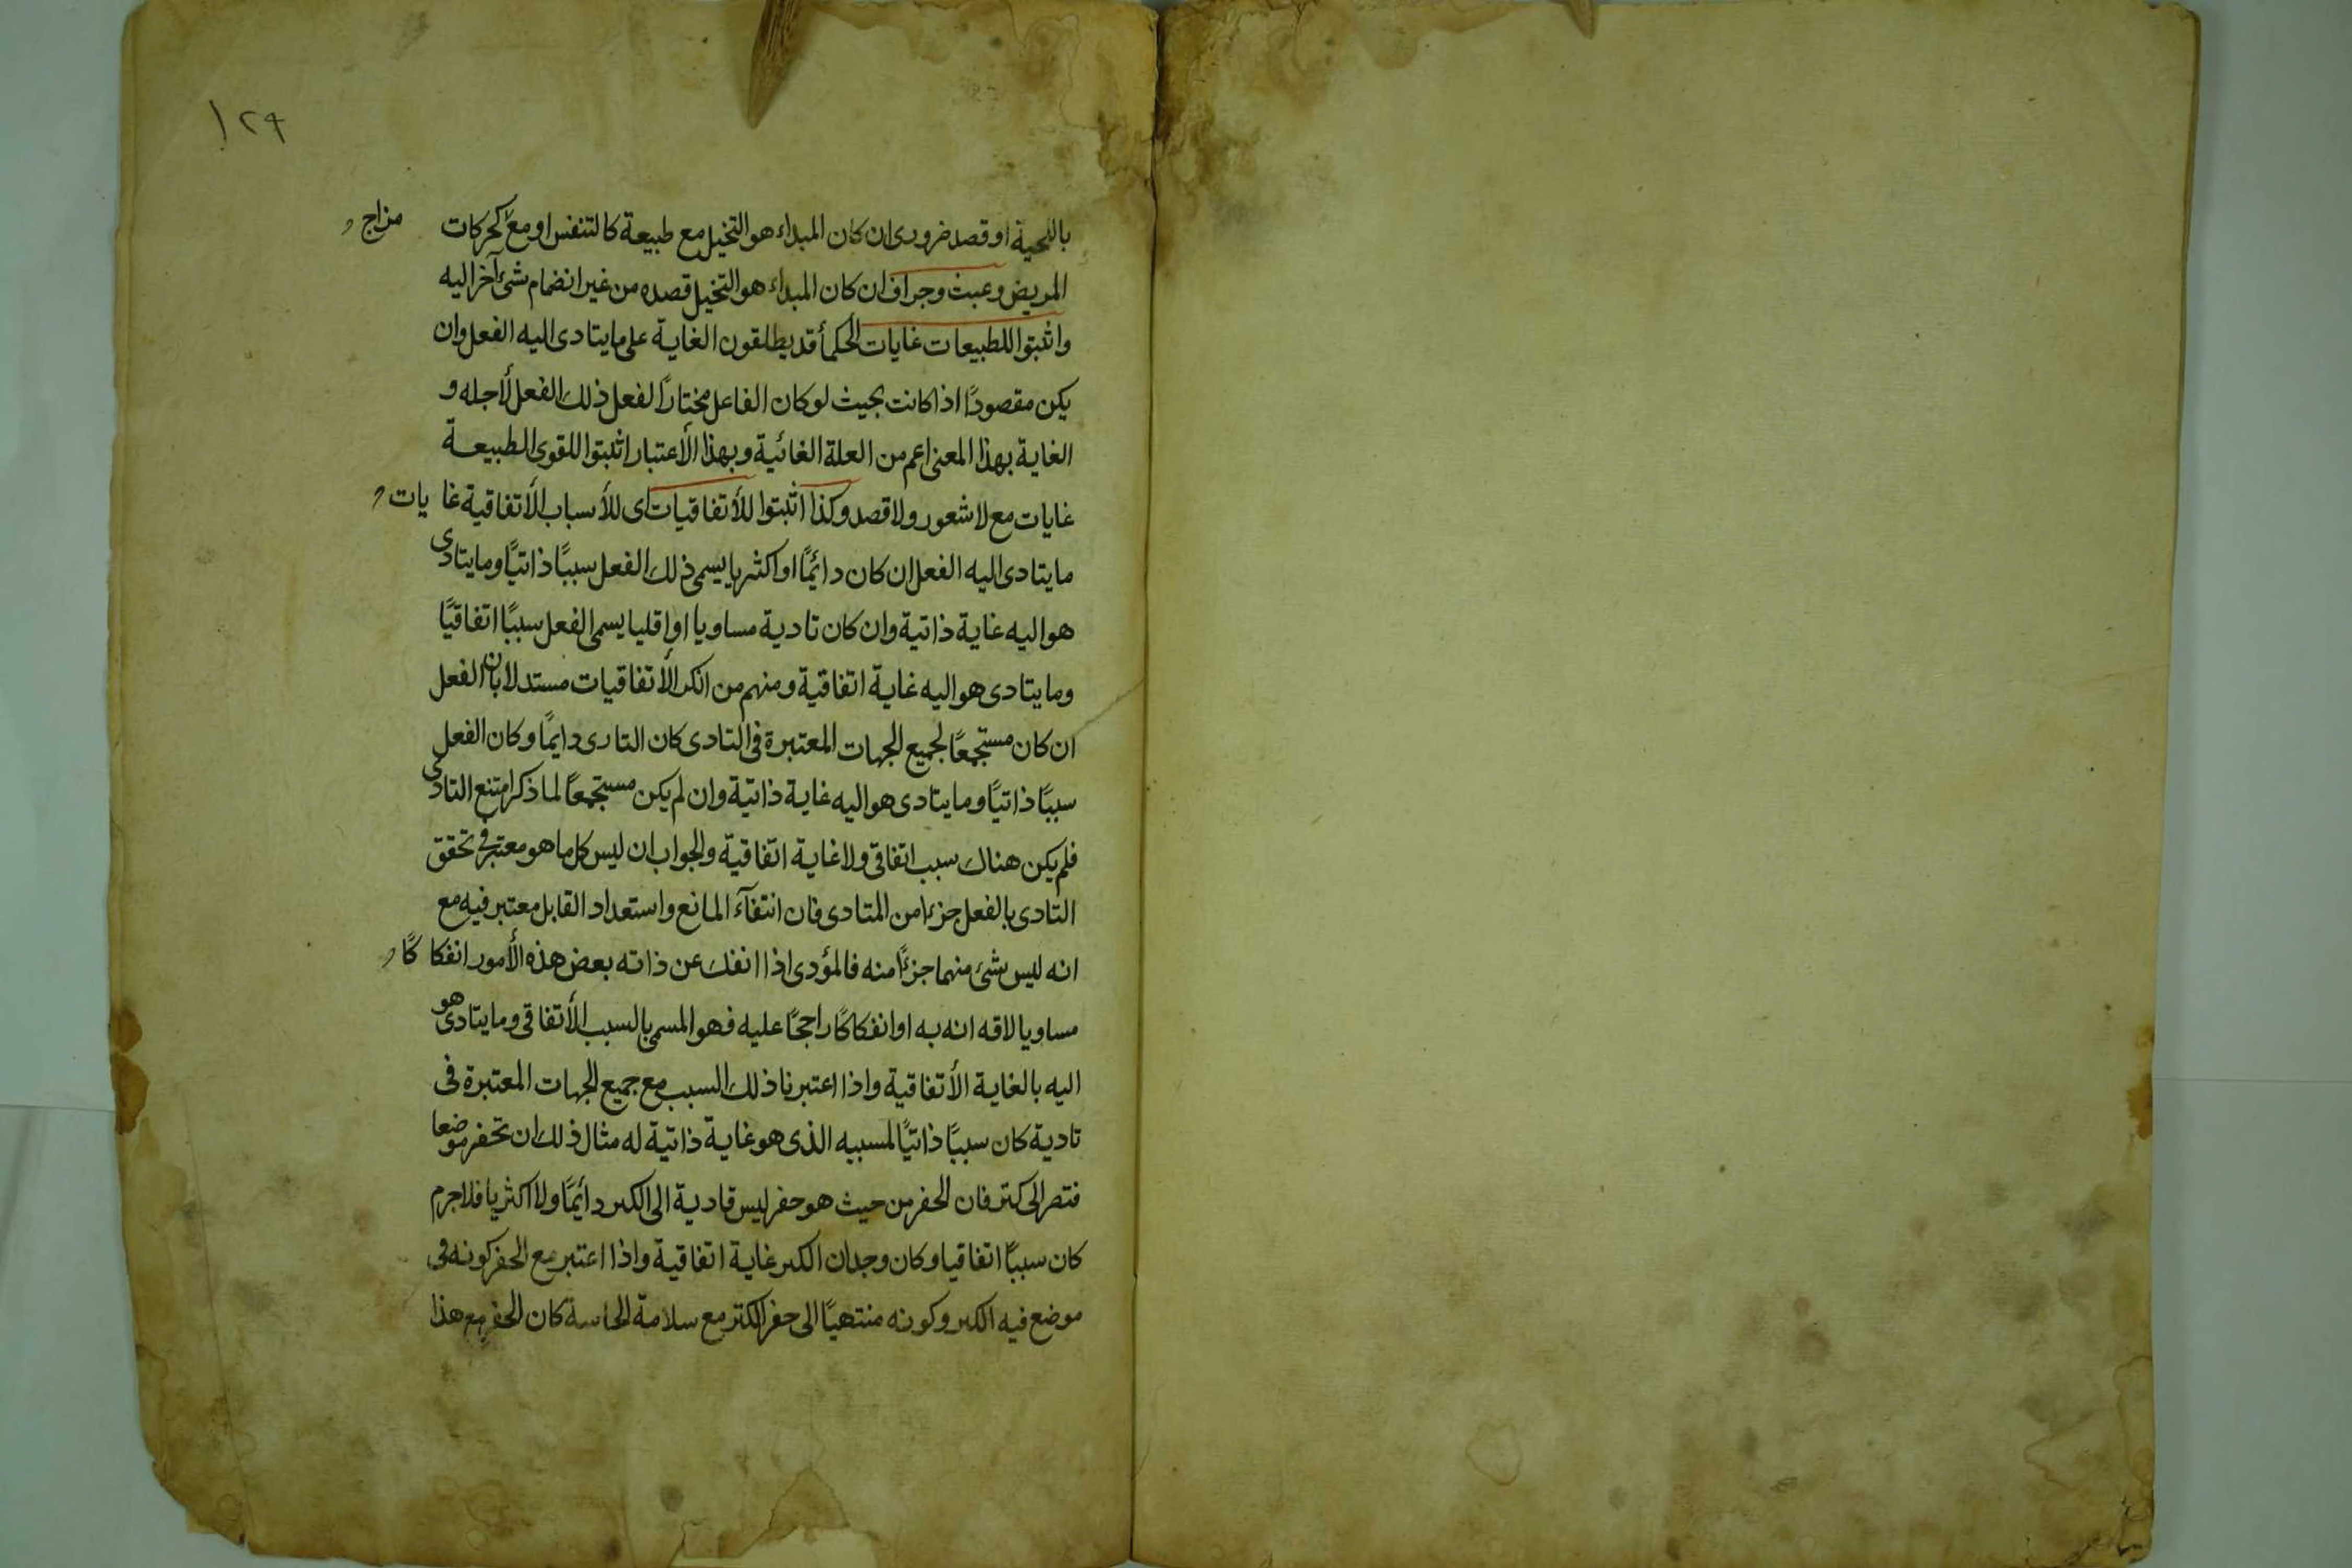 ١٢٩
باللحية او قصد ضرورى ان كان المبداء هو التخيل مع طبيعة كالتنفس او مع كحركات
مزاج
المريض وعبث وجراف ان كان المبداء هو التخيل قصده من غير انضمام شئ آخر اليه
واثبتوا للطبيعات غايات الحكمأ قد يطلقون الغاية على ما يتادى اليه الفعل وان
يكن مقصودًا اذا كانت بحيث لو كان الفاعل مختارًا لفعل ذلك الفعل لأجله و
الغاية بهذا المعنى اعم من العلة الغائية وبهذا الأعتبار اثبتوا للقوى الطبيعة
غايات مع لا شعور ولا قصد وكذا اثبتوا للأتفاقيات اى للأسباب الأتفاقية غايات
ما يتادى اليه الفعل ان كان دائمًا او اكثريا يسمى ذلك الفعل سببًا ذاتيًا وما يتادى
هو اليه غاية ذاتية وان كان تادية مساويا او اقليا يسمى الفعل سببًا اتفاقيًا
وما يتادى هو اليه غاية اتفاقية ومنهم من انكر الأتفاقيات مستدلا بان الفعل
ان كان مستجمعًا لجميع الجهات المعتبرة فى التادى كان التادى دايمًا وكان الفعل
سببًا ذاتيًا وما يتادى هو اليه غاية ذاتية وان لم يكن مستجمعًا لما ذكر امتنع التادى
فلم يكن هناك سبب اتفاقى ولا غاية اتفاقية والجواب ان ليس كل ما هو معتبر فى تحقق
التادى بالفعل جزءا من المتادى فان انتفآء المانع واستعداد القابل معتبر فيه مع
انه ليس شئ منهما جزءًا منه فالمؤدى اذا انفك عن ذاته بعض هذه الأمور انفكاكًا
مساويا لاقه انه به او انفكاكًا راجحًا عليه فهو المسمى بالسبب الأتفاقى وما يتادى هو
اليه بالغاية الأتفاقية واذا اعتبرنا ذلك السبب مع جميع الجهات المعتبرة فى
تادية كان سببًا ذاتيًا لمسببه الذى هو غاية ذاتية له مثال ذلك ان تحفر موضعا
الى كتر فان الحفر من حيث هو حفر ليس قادية الى الكبر دائمًا ولا اكثريا فلا جرم
كان سببًا اتفاقيا وكان وجدان الكبر غاية اتفاقية واذا اعتبر مع الحفر كونه فى
موضع فيه الكبر وكونه منتهيًا الى حفر الكتر مع سلامة الحاسة كان الحفر مع هذا